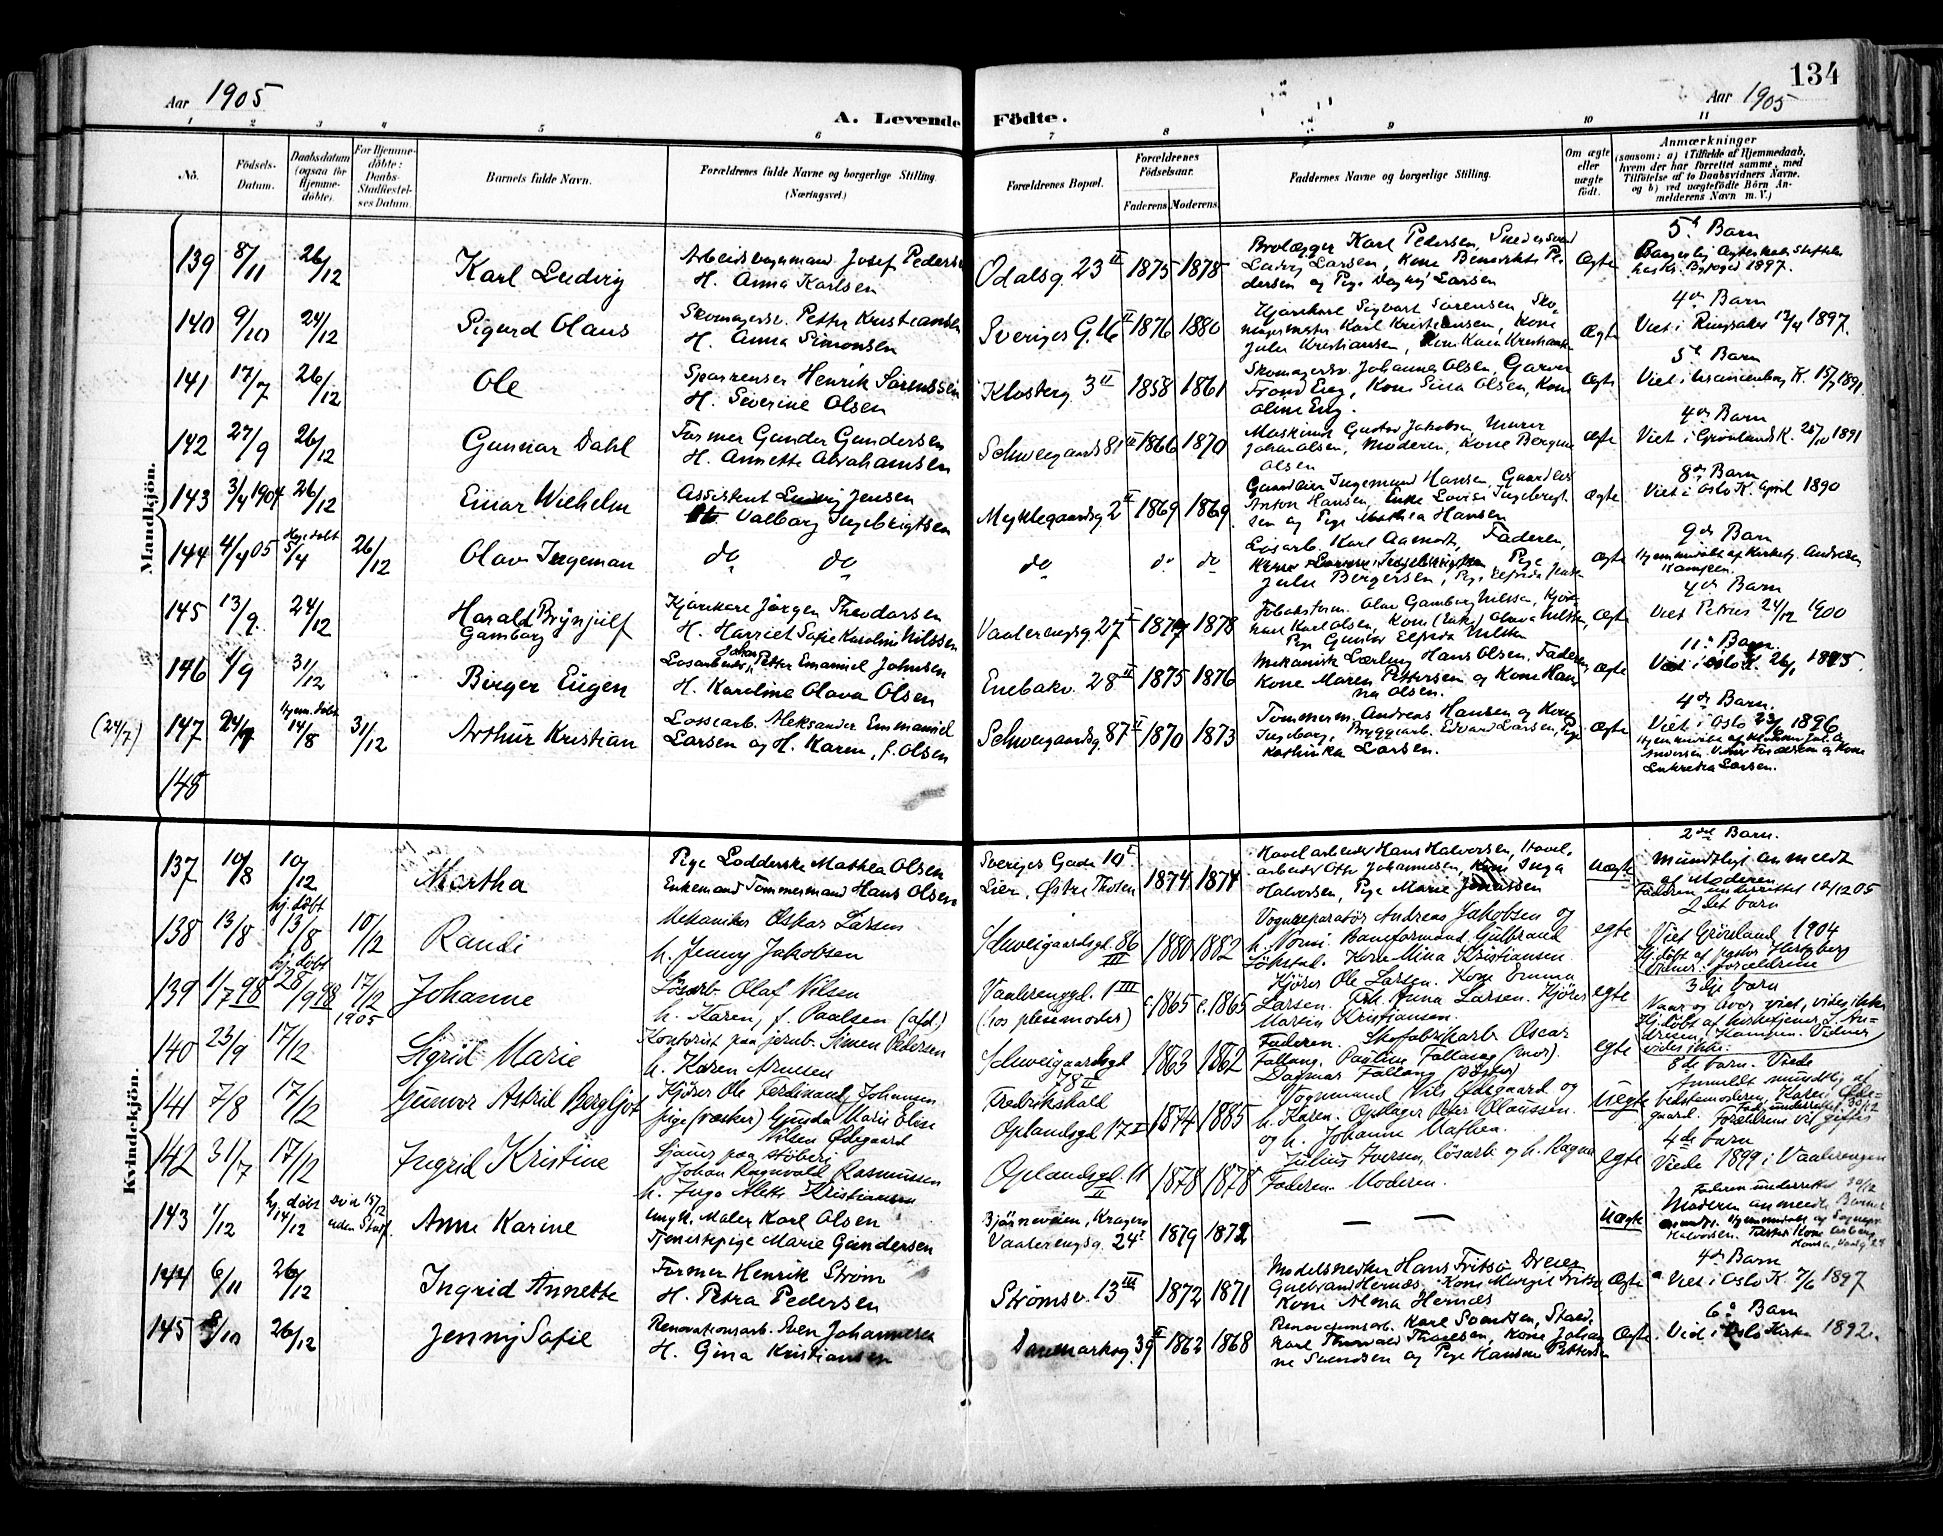 134
Aar 1905
A. Levende Födte.
Aar 1905
1 2 3 4 5 6 7 8 9 10 11
No.
Födsels-Datum.
Daabsdatum (ogsaa for Hjemme-döbte).
For Hjemme-döbte: Daabs-Stadfæstel-ses Datum.
Barnets fulde Navn.
Forældrenes fulde Navne og borgerlige Stilling. (Næringsvei.)
Forældrenes Bopæl.
Forældrenes Födselsaar.
Faderens. Moderens.
Faddernes Navne og borgerlige Stilling.
Om ægte eller uægte födt.
Anmærkninger
(saasom: a) i Tilfælde af Hjemmedaab, hvem der har forrettet samme, med Tilföielse af to Daabsvidners Navne, og b) ved uægtefödte Börn An-melderens Navn m. V.)
Mandkjön.
139 8/11 26/12 Karl Ludvig
Arbeidsvognmand Josef Peders
H. Anna Karlsen
Odalsg. 23 II 1875 1878
Brolægger Karl Pedersen,
Ludvig Larsen, Kone Benedikte Pe-
dersen og Pige Dagny Larsen
Ægte
5te Barn
1897.
140 9/10 24/12 Sigurd Olaus
Skomagersv. Petter Kristiansen
H. Anna Simonsen
Sveriges G. 16 II 1876 1880
Kjørekarl Sigvart Sørensen, Sko-
magermester Karl Kristiansen, Kone
Julie Kristiansen, Kone Karen Kristiansen
Ægte
4de Barn
Viet i Ringsaker 12/4 1897.
141 17/7 26/12 Ole
Henrik Sørenssen
H. Severine Olsen
Klosterg. 3 II 1858 1861
Skomagersv. Johannes Olsen, Garver
Trond Eng, Kone Sina Olsen, Kone
Oline Eng.
Ægte
5te Barn
Viet i Uranienborg K. 15/7 1891.
142 27/9 26/12 Gunnar Dahl
Former Gunder Gundersen
H. Annette Abrahamsen
Schweigaards 81 II 1866 1870
Maskinist Gustav Jakobsen, Murer
Johan Olsen, Moderen, Kone
Olsen
Ægte
4de Barn
Viet i Grønlands K. 25/10 1891
143 3/4 1904 26/12 Einar Wilhelm
Assistent Ludvig Jensen
Valborg Ingebrigtsen
Myklegaardsg 2 II 1869 1869
Gaardeier Ingemund Hansen, Gaardeier
Anton Hansen, Enke Lovise Ingebrigt-
sen og Pige Mathea Hansen
Ægte
8de Barn
Viet i Oslo K. April 1890
144 4/4 05 Hjemdøbt 5/4 26/12 Olav Ingeman
do do do do do
Løsarb. Karl Aamodt, Faderen,
Julie Bergersen, Pige Elfrida Jensen
Ægte
9de Barn
Hjemmedøbt af Kirketj. Andresen
Kampen.
145 13/9 24/12 Harald Brynjulf
Gamborg
Kjørekarl Jørgen Theodorsen
H. Harriet Sofie Karoline Nilssen
Vaalerengsg. 27 I 1877 1878
Olav Gamborg Nilssen,
Karl Olsen, Kone (Enke) Olava Nilssen,
Pige Gunvor Elfrida Nilssen
Ægte
4de Barn
Viet Petrus 24/12 1900
146 1/9 31/12 Birger Eugen
Løsarbeider Johan Petter Emanuel Johnsen
H. Karoline Olava Olsen
Enebakv. 28 II 1875 1876
Mekanisk Lærling Hans Olsen, Faderen,
Kone Maren Pettersen og Kone Han-
na Olsen.
Ægte
11te Barn.
Viet i Oslo K. 26/1 1895.
(24/7) 147 24/7 Hjem. døbt 14/8 31/12 Arthur Kristian
Lossearb. Aleksander Emmanuel
Larsen og H. Karen, f. Olsen
Schweigaardsg. 87 II 1870 1873
Tømmerm. Andreas Hansen og Kone
Ingeborg, Bryggearb. Edvard Larsen, Pige
Kathinka Larsen.
Ægte
4de Barn.
Viet i Oslo 23/6 1896
Lukretia Larsen.
148
Kvindekjön.
137 10/8 10/12 Martha
Pige Lodderske Mathea Olsen
Enkemand Tømmermand Hans Olsen
Sveriges Gade 10 I
Lier, Østre Thoten 1874 1874
Høvelarbeider Hans Halvorsen, Høvel-
arbeider Otto Johannesen, Kone Inga
Halvorsen, Pige Marie Jonassen
Uægte
2det Barn.
Mundtligt anmeldt
af Moderen
Faderen underrettet 12/12 05
138 13/8 hj. døbt 13/8 10/12 Randi
Mekaniker Oskar Larsen
h. Jenny Jakobsen
Schweigaardsgd. 86 III 1880 1882
Vognreparatør Andreas Jakobsen og
h. Nomi. Baneformand Gulbrand
Løkstad. Kone Mina Kristiansen
egte
2det barn
Viet Grønland 1904
Hj. døbt af pastor Hertzberg
Vidner: forældrene
139 1/7 98 hj. døbt 28/9 98 17/12 1905 Johanne
Løsarb. Olaf Nilsen
h. Karen, f. Paulsen (afd.)
Vaalerenggd. 1 III
(hos plejemoder) c. 1865 c. 1865
Kjører Ole Larsen. Kone Emma
Larsen. Frk. Anna Larsen. Kjører
Martin Kristiansen.
egte
3dje barn
Naar og hvor viet, vides ikke
Hj. døbt af kirketjener J. An-
dresen, Kampen. Vidner
vides ikke.
140 23/9 17/12 Sigrid Marie
Kontorist paa jernb. Simen Pedersen
h. Karen Arnesen
Schweigaardsgd 78 II 1863 1862
Faderen. Skofabrikarb. Oscar
Fallang. Pauline Fallang (mor).
Dagmar Fallang (søster)
egte
8de barn. Viede
141 7/8 17/12 Gunvor Astrid Bergljot
Kjører Ole Ferdinand Johansen
pige (vasker) Gunda Marie Elise
Nilsen Ødegaard
Fredrikshald
Oplandsgd. 17 I 1874 1885
Vognmand Nils Ødegaard og
h. Karen. Opdager Peter Olaussen
og h. Johanne Mathea.
Uægte
Anmeldt mundtlig af
bedstemoderen, Karen Øde-
gaard. Fader underrettet 30/12
Forældrene vil giftes
142 31/7 17/12 Ingrid Kristine
Sjauer paa støberi
Johan Ragnvald Rasmussen
h. Inga Aletta Kristiansen
Oplandsgd. 11 II 1878 1878
Julius Iversen, løsarb. og h. Ragna
Faderen. Moderen.
egte
4de barn
Viede 1899 i Vaalerengen
143 1/12 hj. døbt 14/12 Død 15/12 uden Stadf. Anne Karine
Ungk. Maler Karl Olsen
Tjenestepige Marie Gundersen
Bjørneveien, Kragerø
Vaalerengsg. 24 I 1879 1872
— —
Uægte
Faderen underrettet 30/12
Moderen anmeldte Barnet
144 6/11 26/12 Ingrid Annette
Former Henrik Strøm
H. Petra Pedersen
Strømsv. 13 III 1872 1871
Modelsnedker Hans Fritsø, Dreier
Gulbrand Hernæs, Kone Margit Fritsø,
Kone Alma Hernæs
Ægte
4de Barn
Viet i Oslo K. 7/6 1897
145 8/10 26/12 Jenny Sofie
Renovationsarb. Even Johannesen
H. Gina Kristiansen
Danmarksg. 39 II 1862 1868
Renovationsarb. Karl Svendsen, Stald-
karl Thorvald Thoresen, Kone Johan-
ne Svendsen og Pige Hansine Pettersen
Ægte
6te Barn
Vied i Oslo Kirke 1892.